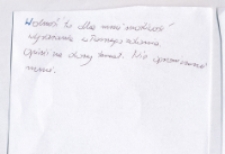 Wolność to dla mnie możliwość
wyrażania własnego zdania.
Opinii na dany temat. Nie